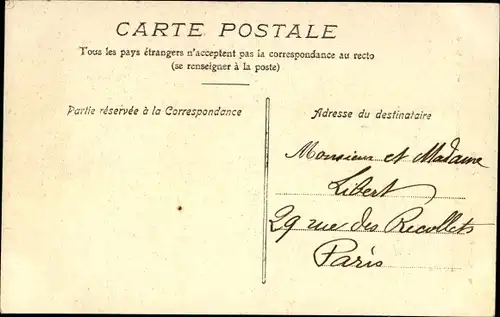 CARTE POSTALE
Tous les pays étrangers n'acceptent pas la correspondance au recto
(se renseigner à la poste)
Partie réservée à la Correspondance
Adresse du destinataire
Monsieur et Madame
Libert
29 rue des Recollets
Paris